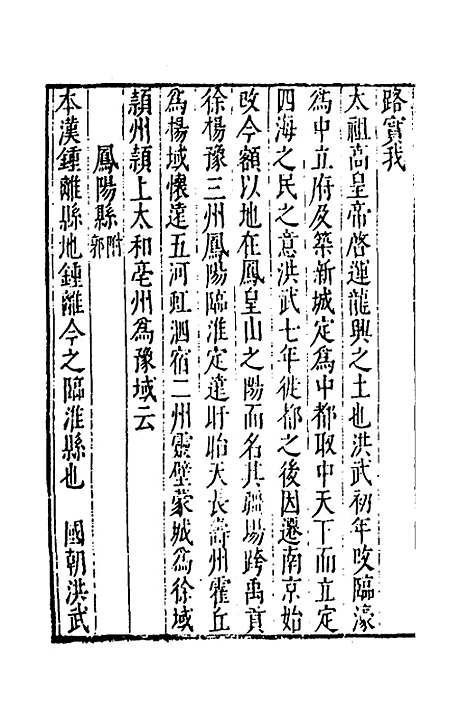 路實我
太祖高皇帝啓運龍興之土也洪武初年攺臨濠
爲中立府及築新城定爲中都取中天下而立定
四海之民之意洪武七年徙都之後因遷南京始
攺今額以地在鳳皇山之陽而名其疆場跨禹貢
徐楊豫三州鳳陽臨淮定遠盱眙天長壽州霍丘
爲楊域懷遠五河虹泗宿二州靈璧蒙城爲徐域
潁州潁上太和亳州爲豫域云
鳳陽縣附郭
本漢鍾離縣地鍾離今之臨淮縣也 國朝洪武